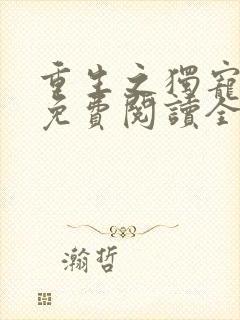 重生之獨寵
免費閱讀全
瀚哲